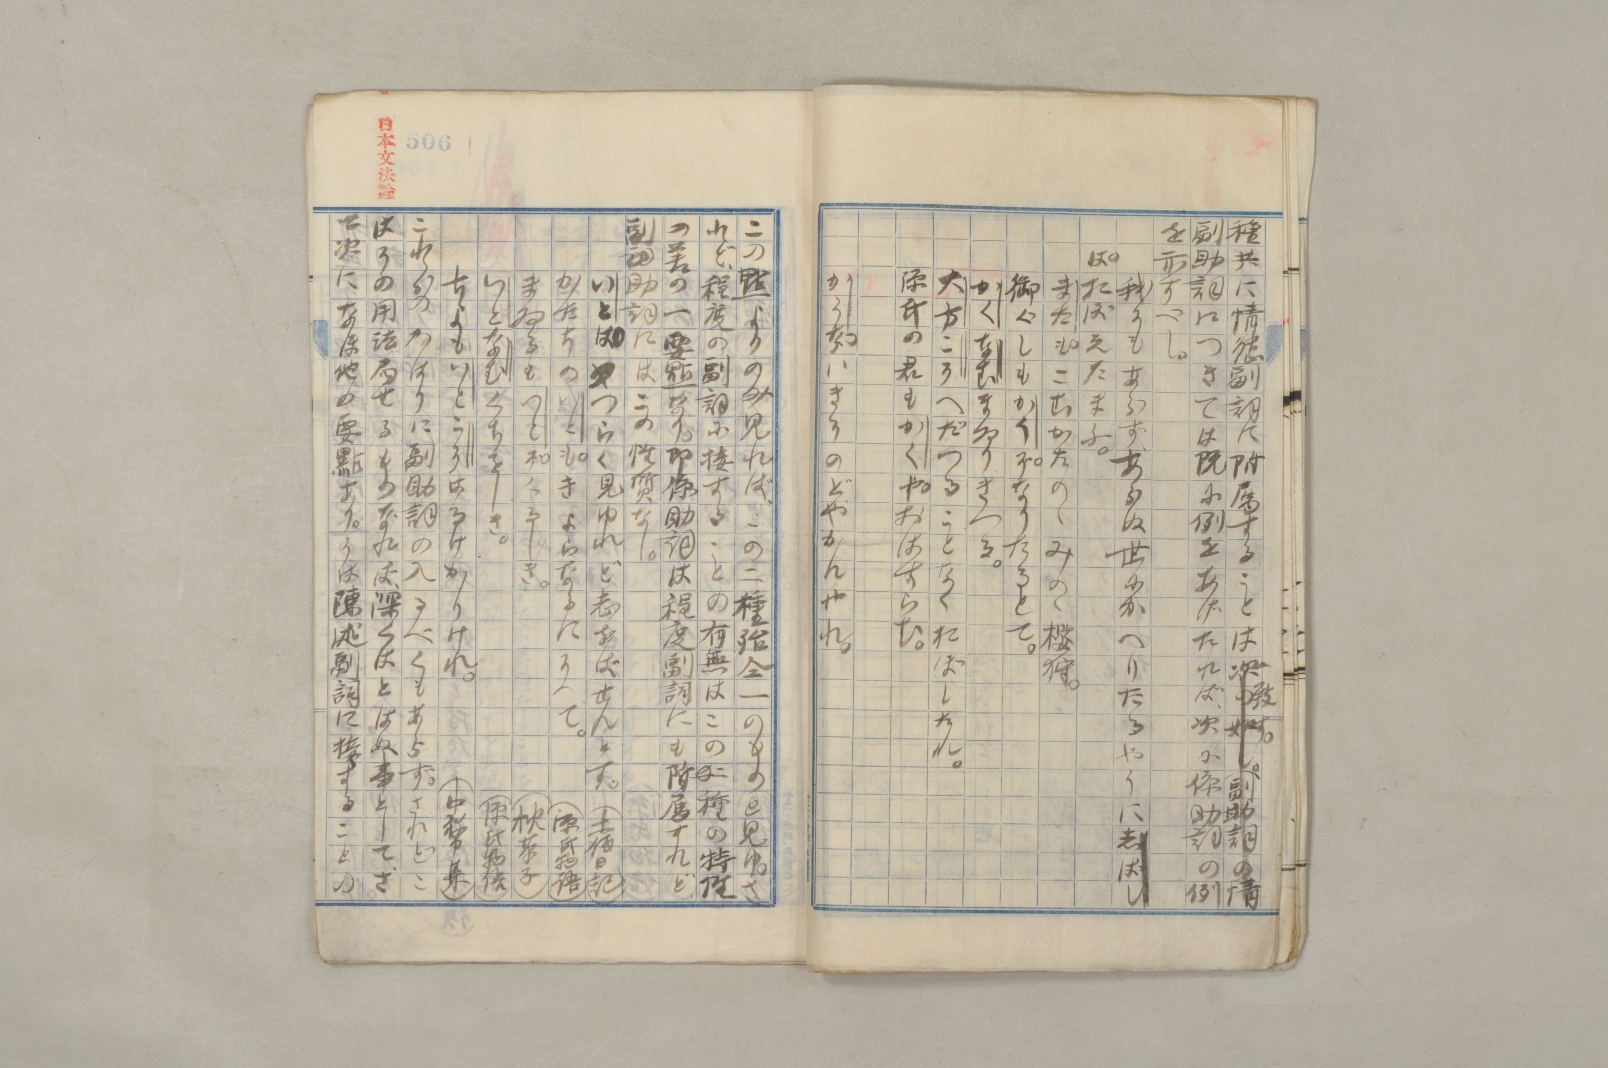 種共に情態副詞に附属することは次の如し。副助詞の情
致す。
副助詞につきては既に例をあげたれば、次に係助詞の例
を示すべし。
我にもあらずあらぬ世にかへりたるやうに志ばし
は。おぼえたまふ。
またも。こむかたのゝみのゝ櫻狩。
御ぐしもかうぞ。なりたるとて。
かくなむまゐりきつる。
大方こそへだつることなくおぼしたれ。
源氏の君もかくや。おはすらむ。
かうな。いきそのどやかんやれ。
日本文法論
506
この點よりのみ見れば、この二種殆全一のものと見ゆ。さ
れど、程度の副詞に接することの有無はこの二種の特性
の差の一要點なり。即係助詞は程度副詞にも附属すれど
副助詞にはこの性質なし。
いとはつらく見ゆれど志をばせんとす。 (土佐日記)
かたちのいとも。きよらなるにそへて。 (源氏物語)
まゐるもいとぞ。くるしき。 (枕草子)
いとなむくちをしき。 (源氏物語)
ちよもいとこそはるけかりけれ。 (中務集)
これらのかはりに副助詞の入るべくもあらず。されどこ
はその用法局せるものなれば深くはとはぬ事として、ざ
て次になほ他の要點あり。そは陳述副詞に接することの